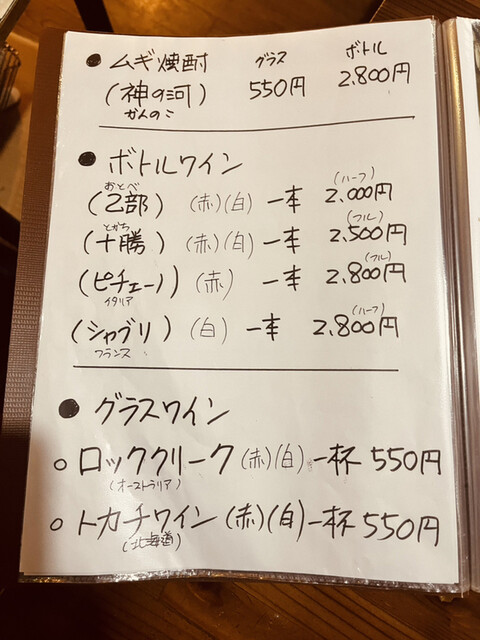 ● ムギ焼酎 グラス ボトル
(神の河) 550円 2.800円
かんのこ
● ボトルワイン
おとべ (ハーフ)
(乙部) (赤)(白) 一本 2.000円
とかち (フル)
(十勝) (赤)(白) 一本 2,500円
(フル)
(ピチェーノ) (赤) 一本 2,800円
イタリア
(ハーフ)
(シャブリ) (白) 一本 2.800円
フランス
● グラスワイン
○ ロッククリーク (赤)(白) 一杯 550円
(オーストラリア)
○ トカチワイン (赤)(白) 一杯 550円
(北海道)